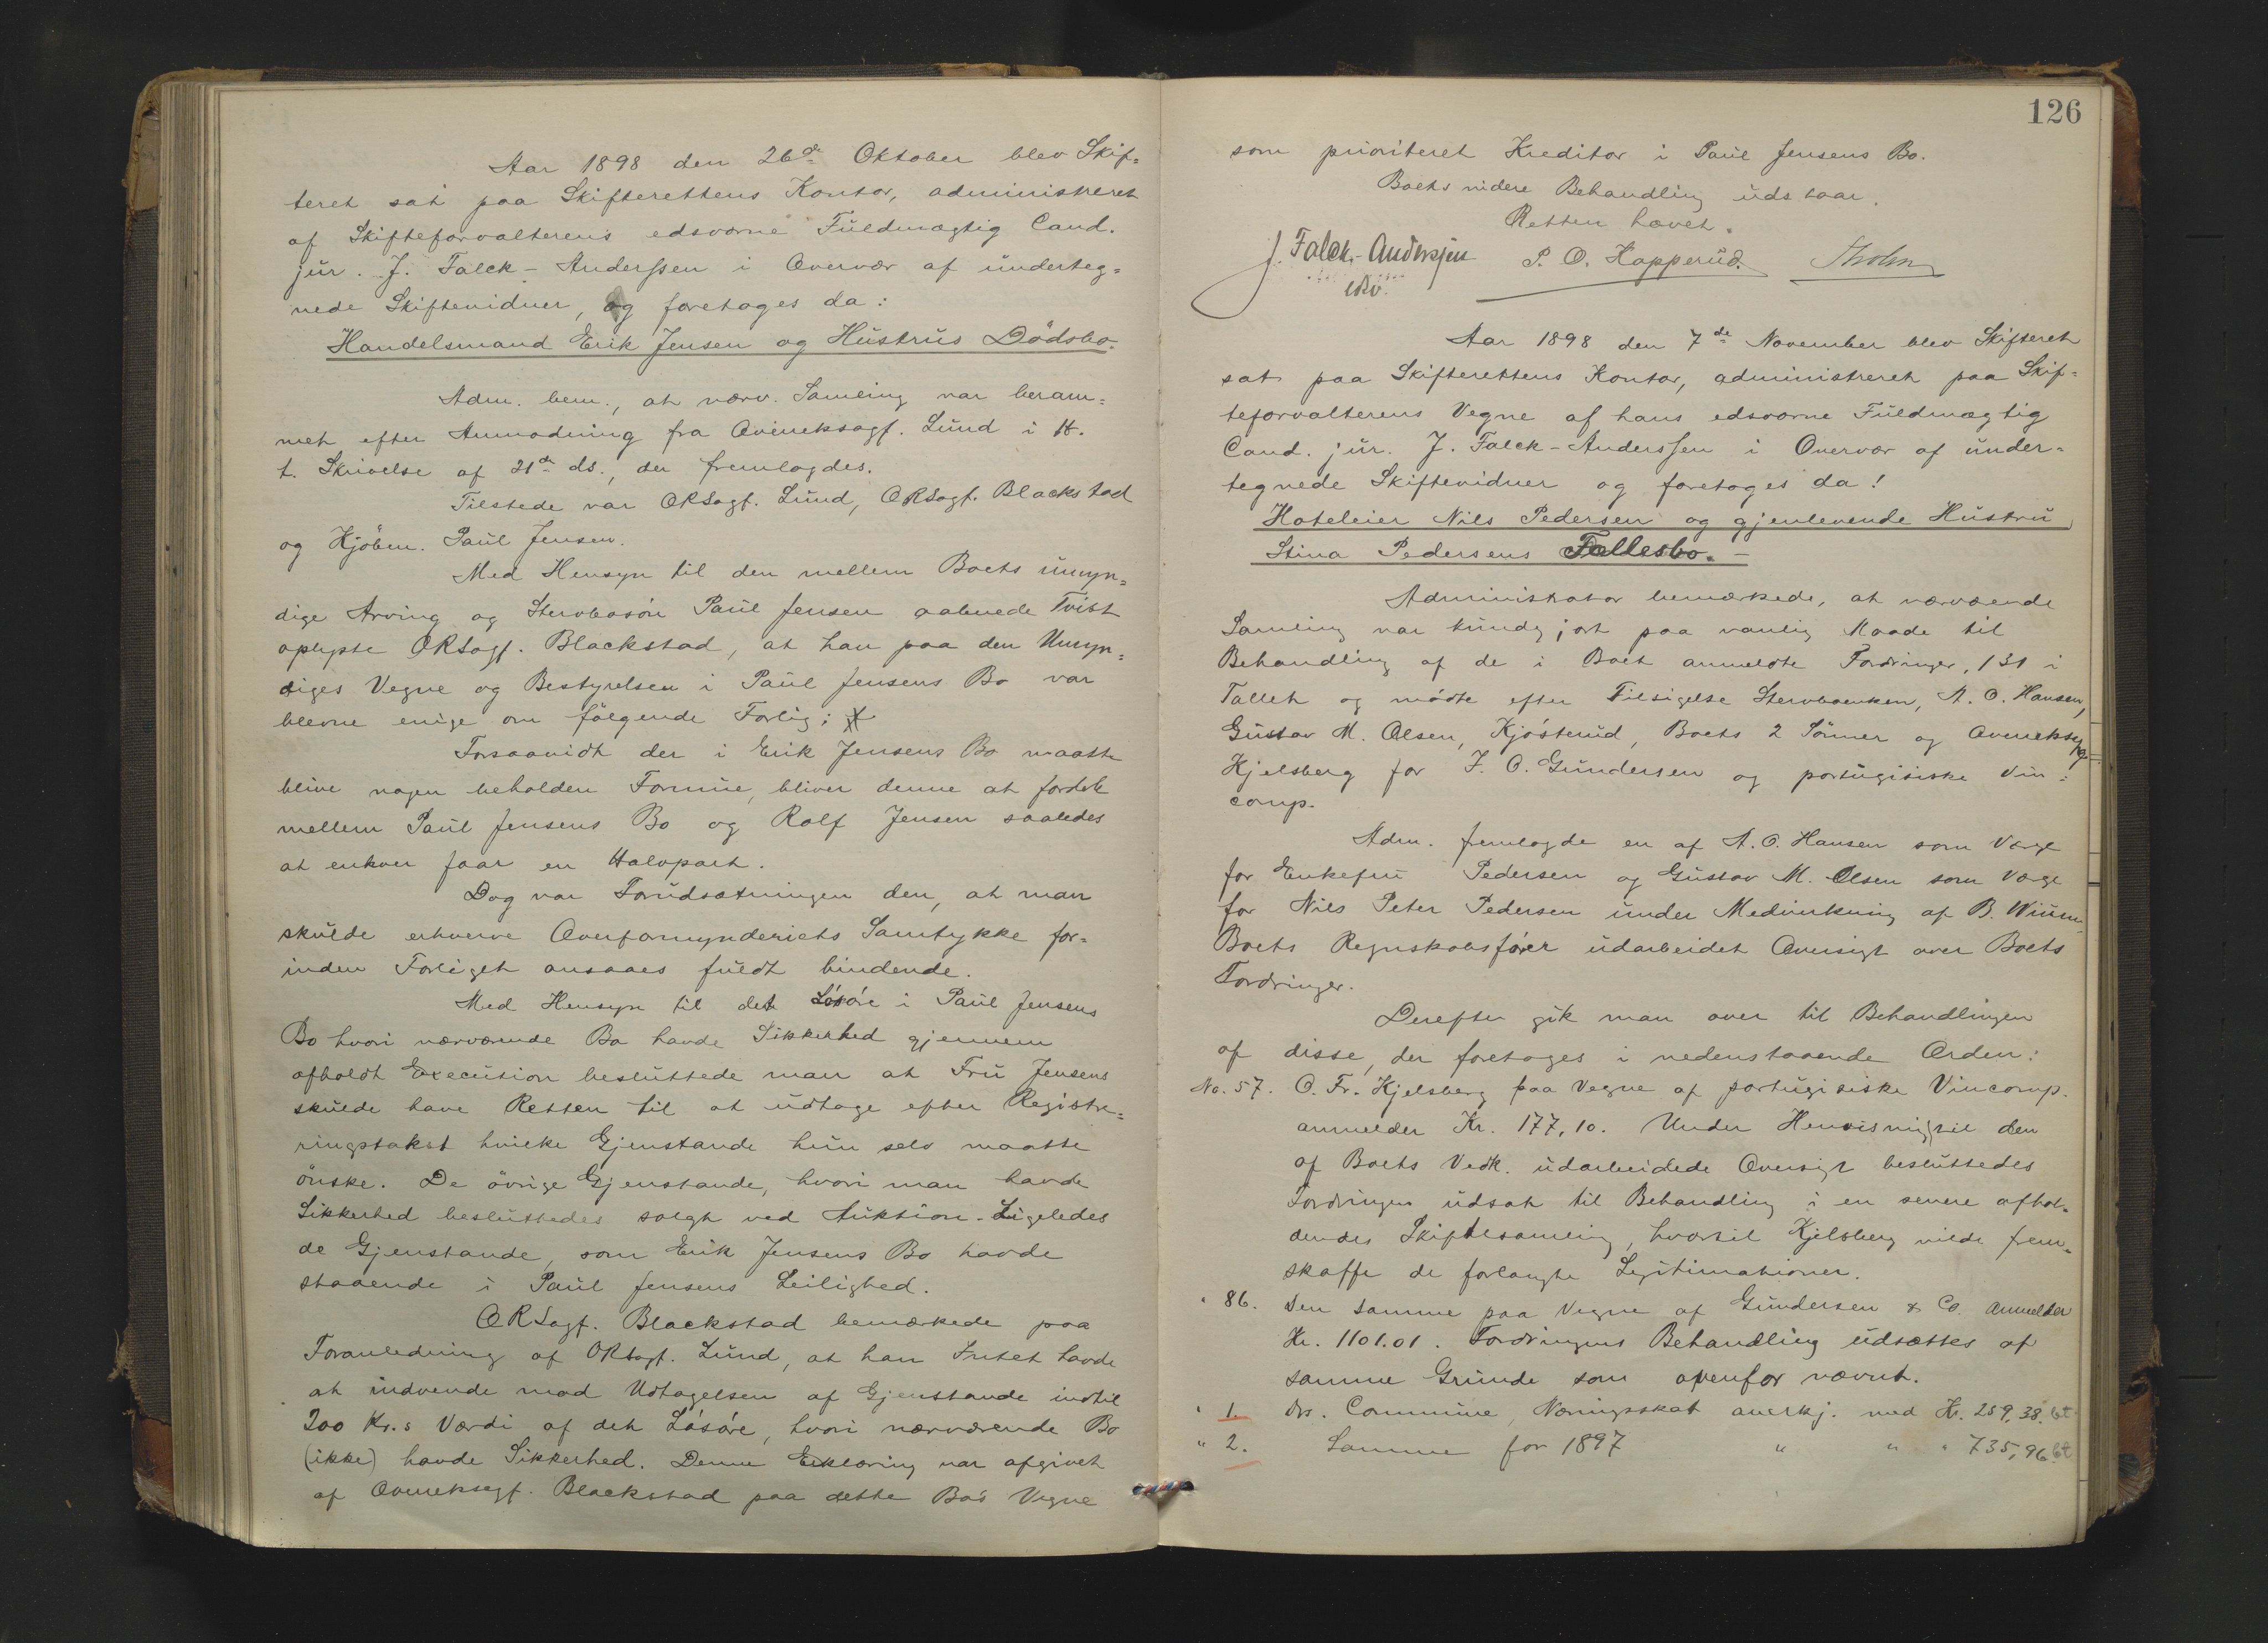 Aar 1898 den 26de Oktober blev Skif=
teret sat paa Skifterettens Kontor, administreret
af Skifteforvalterens edsvorne Fuldmægtig Cand.
jur. J. Falck-Anderssen i Overvær af underteg=
nede Skiftevidner, og foretoges da:
Handelsmand Erik Jensen og Hustrus Dödsbo.
Adm. bem., at nærv. Samling var beram=
met efter Anmodning fra Overretssagf. Lund i H.
t. Skrivelse af 21de ds., der fremlagdes.
Tilstede var ORSagf. Lund, ORSagf. Blackstad
og Kjöbm. Paul Jensen.
Med Hensyn til den mellem Boets umyn=
dige Arving og Stervbosön Paul Jensen aabnede Tvist
oplyste ORSagf. Blackstad, at han paa den Umyn=
diges Vegne og Bestyrelsen i Paul Jensens Bo var
blevne enige om fölgende Forlig;
Forsaavidt der i Erik Jensens Bo maatte
blive nogen beholden Formue, bliver denne at fordele
mellem Paul Jensens Bo og Rolf Jensen saaledes
at enhver faar en Halvpart.
Dog var Forudsætningen den, at man
skulde erhverve Overformynderiets Samtykke for=
inden Forliget ansaaes fuldt bindende.
Med Hensyn til det Lösöre i Paul Jensens
Bo hvori nærværende Bo havde Sikkerhed gjennem
afholdt Execution besluttede man at Fru Jensens
skulde have Retten til at udtage efter Registre=
ringstakst hvilke Gjenstande hun selv maatte
önske. De övrige Gjenstande, hvori man havde
Sikkerhed besluttedes solgt ved Auktion. Ligeledes
de Gjenstande, som Erik Jensens Bo havde
staaende i Paul Jensens Leilighed.
ORSagf. Blackstad bemærkede paa
Foranledning af ORSagf. Lund, at han Intet havde
at indvende mod Udtagelsen af Gjenstande indtil
200 Kr.s Værdi af det Lösöre, hvori nærværende Bo
(ikke) havde Sikkerhed. Denne Erklæring var afgivet
af Overretssagf. Blackstad paa dette Bos Vegne
126
som prioriteret Kreditor i Paul Jensens Bo.
Boets videre Behandling udstaar.
Retten hævet.
J. Falck-Anderssen P. O. Kopperud. Sholm
edsv.
Aar 1898 den 7de November blev Skifteret
sat paa Skifterettens Kontor, administreret paa Skif=
teforvalterens Vegne af hans edsvorne Fuldmægtig
Cand. jur. J. Falck-Anderssen i Overvær af under=
tegnede Skiftevidner og foretoges da!
Hoteleier Nils Pedersen og gjenlevende Hustru
Stina Pedersens Fællesbo. —
Administrator bemærkede, at nærværende
Samling var kundgjort paa vanlig Maade til
Behandling af de i Boet anmeldte Fordringer, 131 i
Tallet og mödte efter Tilsigelse Stervboenken, A. O. Hansen,
Gustav M. Olsen, Kjösterud, Boets 2 Sönner og Overretssagf.
Kjelsberg for J. O. Gundersen og portugisiske Vin=
comp.
Adm. fremlagde en af A. O. Hansen som Værge
for Enkefru Pedersen og Gustav M. Olsen som Værge
for Nils Peter Pedersen under Medvirkning af B. Wium
Boets Regnskabsförer udarbeidet Oversigt over Boets
Fordringer.
Derefter gik man over til Behandlingen
af disse, der foretoges i nedenstaaende Orden:
No. 57. O. Fr. Kjelsberg paa Vegne af portugisiske Vincomp.
anmelder Kr. 177,10. Under Henvisning til den
af Boets Vedk. udarbeidede Oversigt besluttedes
Fordringen udsat til Behandling i en senere afhol=
dendes Skiftesamling, hvortil Kjelsberg vilde frem=
skaffe de forlangte Legitimationer.
" 86. Den samme paa Vegne af Gundersen & Co. anmelder
Kr. 1101.01. Fordringens Behandling udsættes af
samme Grunde som ovenfor nævnt.
" 1. Drs. Commune, Næringsskat anerkj. med Kr. 259,38. bt
" 2. Samme for 1897 " " " 735,96. bt